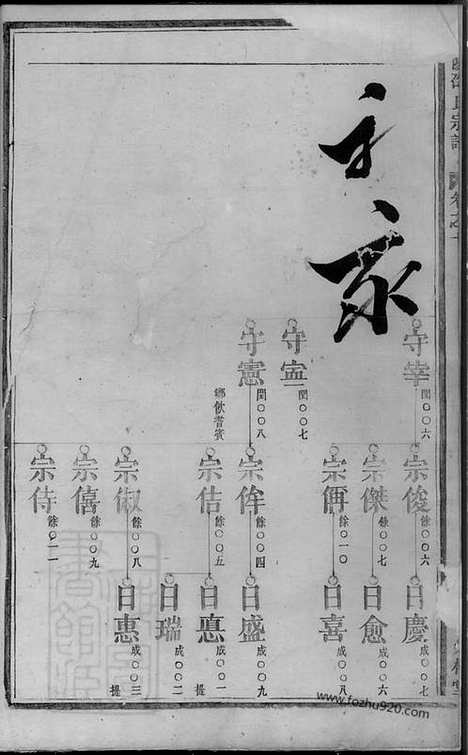 氏宗譜
守幸
閏〇〇六
守
閏〇〇七
守憲
閏〇〇八
鄉飲耆賓
宗俊
餘〇〇六
宗傑
餘〇〇七
宗
餘〇一〇
宗侔
餘〇〇四
宗佶
餘〇〇五
宗俶
餘〇〇八
宗僖
餘〇〇九
宗侍
餘〇一一
日慶
成〇〇七
日愈
成〇〇六
日喜
成〇〇八
日盛
成〇〇九
日悳
成〇〇一
提
日瑞
成〇〇二
日惠
成〇〇三
提
www.fozhu920.com